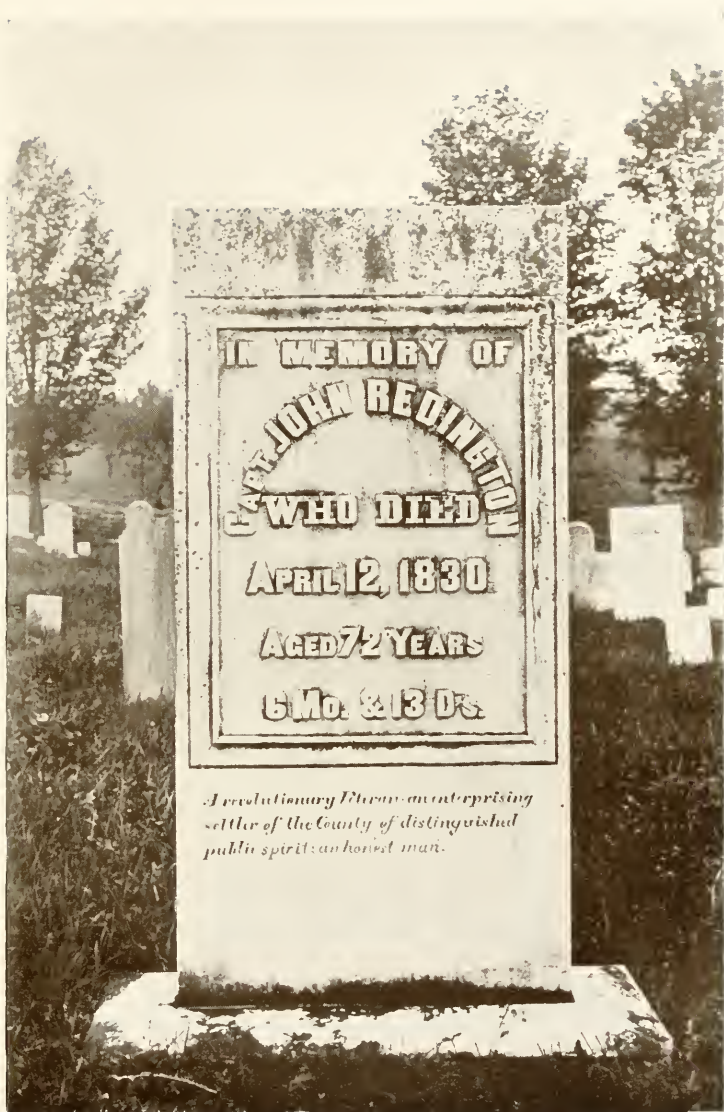 IN MEMORY OF
CAPT. JOHN REDINGTON
WHO DIED
APRIL 12, 1830
AGED 72 YEARS
6 MO. & 13 D'S.
A revolutionary Veteran: an enterprising
settler of the County of distinguished
public spirit: an honest man.